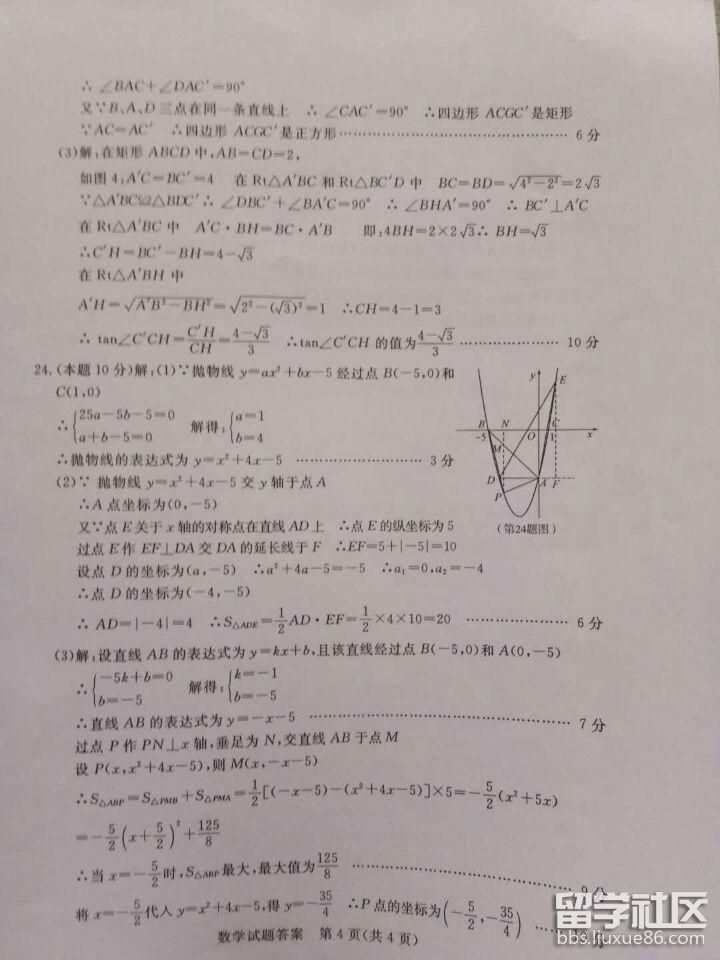 ∴ ∠BAC+∠DAC′=90°
又∵B、A、D 三点在同一条直线上 ∴ ∠CAC′=90° ∴四边形 ACGC′是矩形
∵AC=AC′ ∴四边形 ACGC′是正方形………………………… 6 分
(3)解:在矩形 ABCD 中,AB=CD=2,
如图 4:A′C=BC′=4 在 Rt△A′BC 和 Rt△BC′D 中 BC=BD=√(4²-2²)=2√3
∵△A′BC≌△BDC′∴ ∠DBC′+∠BA′C=90° ∴ ∠BHA′=90° ∴ BC′⊥A′C
在 Rt△A′BC 中 A′C·BH=BC·A′B 即:4BH=2×2√3∴ BH=√3
∴C′H=BC′-BH=4-√3
在 Rt△A′BH 中
A′H=√(A′B²-BH²)=√(2²-(√3)²)=1 ∴CH=4-1=3
∴ tan∠C′CH=C′H/CH=(4-√3)/3 ∴tan∠C′CH 的值为(4-√3)/3 ………………… 10 分
24.(本题 10 分)解:(1)∵抛物线 y=ax²+bx-5 经过点 B(-5,0)和
C(1,0)
∴{25a-5b-5=0 a+b-5=0 解得:{a=1 b=4
∴抛物线的表达式为 y=x²+4x-5 ………………… 3 分
(2)∵ 抛物线 y=x²+4x-5 交 y 轴于点 A
∴A 点坐标为(0,-5)
又∵点 E 关于 x 轴的对称点在直线 AD 上 ∴点 E 的纵坐标为 5
过点 E 作 EF⊥DA 交 DA 的延长线于 F ∴EF=5+|-5|=10
设点 D 的坐标为(a,-5) ∴a²+4a-5=-5 ∴a₁=0,a₂=-4
∴点 D 的坐标为(-4,-5)
∴ AD=|-4|=4 ∴S△ADE=1/2AD·EF=1/2×4×10=20 ………………… 6 分
y
E
B
N
O
C
-5
1
x
M
D
A
F
P
(第24题图)
(3)解:设直线 AB 的表达式为 y=kx+b,且该直线经过点 B(-5,0)和 A(0,-5)
∴{-5k+b=0 b=-5 解得:{k=-1 b=-5
∴直线 AB 的表达式为 y=-x-5 ………………………… 7 分
过点 P 作 PN⊥x 轴,垂足为 N,交直线 AB 于点 M
设 P(x,x²+4x-5),则 M(x,-x-5)
∴S△ABP=S△PMB+S△PMA=1/2[(-x-5)-(x²+4x-5)]×5=-5/2(x²+5x)
=-5/2(x+5/2)²+125/8
∴当 x=-5/2时,S△ABP最大,最大值为125/8 …………………………
将 x=-5/2代入 y=x²+4x-5,得 y=-35/4 ∴P 点的坐标为(-5/2,-35/4) ……
数学试题答案 第 4 页(共 4 页)
留学社区
bbs.liuxue86.com